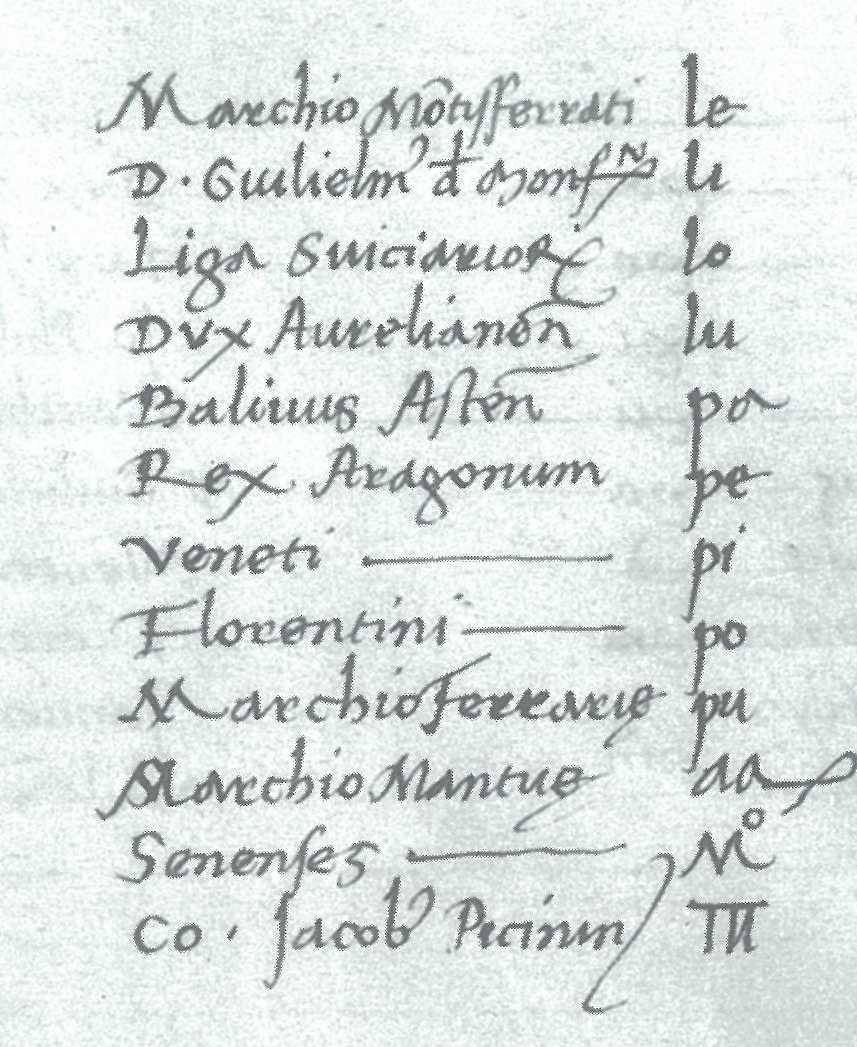 Marchio Mōtisferrati le
D. Guilielm⁹ d̄ Monf li
Liga Suiciarior lo
Dux Aurelianen̄ lu
Balivus Asten̄ pa
Rex Aragonum pe
Veneti — pi
Florentini — po
Marchio ferrarie pu
Marchio Mantue aa
Senenses — Mº
Co. Jacob⁹ Picinin